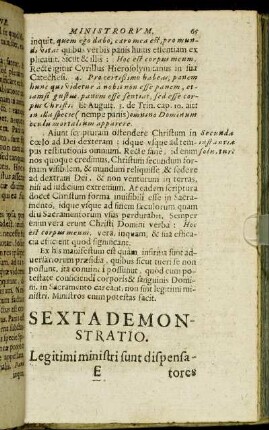 MINISTRORVM. 65
inquit, quem ego dabo, caro mea est, pro mun-
di vita: quibus verbis panis huius essentiam ex
plicauit. Sicut & illis: Hoc est corpus meum.
Recte igitur Cyrillus Hierosolymitanus in sua
Catechesi. 4. Pro certissimo habeas, panem
hunc qui videtur à nobis non esse panem, et-
iamsi gustus panem esse sentiat, sed esse cor-
pus Christi. Et August. 3. de Trin. cap. 10. ait
in illa specie (nempe panis) omnino Dominum
mortalium apparere.
Aiunt scripturam ostendere Christum in
cœlo ad Dei dexteram: idque vsque ad tem-
pus restitutionis omnium. Recte sane: idem
nos quoque credimus, Christum secundum for-
mam visibilem, & mundum reliquisse, & sedere
ad dexteram Dei, & non venturum in terras,
nisi ad iudicium extremum. At eadem scriptura
docet Christum forma inuisibili esse in Sacra-
mento, idque vsque ad finem sæculorum quam
diu Sacramentorum vsus perdurabit. Semper
enim vera erunt Christi Domini verba: Hoc
est corpus meum, vera, inquam, & sua effica-
cia efficient quod significant.
Ex his manifestum est quàm infirma sint ad-
uersariorum præsidia, quibus sicut inter se non
possunt, ita conuinci possunt, quod cum po-
testate conficiendi corporis & sanguinis Domi-
ni in Sacramento careant, non sint legitimi mi-
nistri. Ministros enim potestas facit.
Secunda
instantiæ
solutio
SEXTA DEMON-
STRATIO.
Legitimi ministri sunt dispensa-
E tores